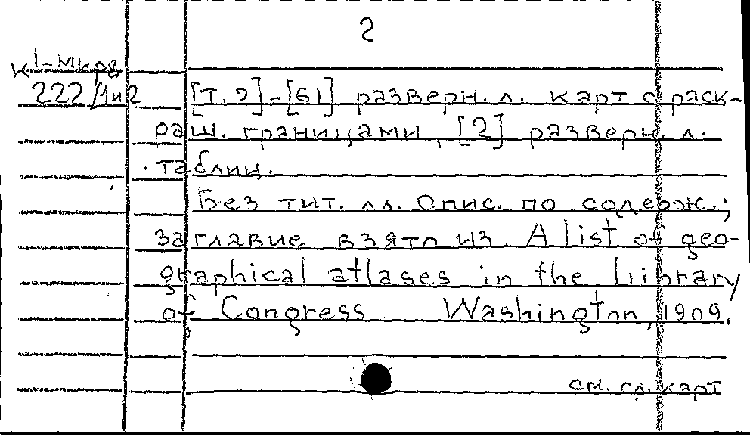 2
К1-Мкрф
222/1и2
[Т. 2]-[61] разверн. л. карт с раск-
раш. границами, [2] разверн. л.
таблиц.
Без тит. лл. Опис. по содерж.;
заглавие взято из A list of geo-
graphical atlases in the Library
of Congress Washington, 1909.
см. сл. карт